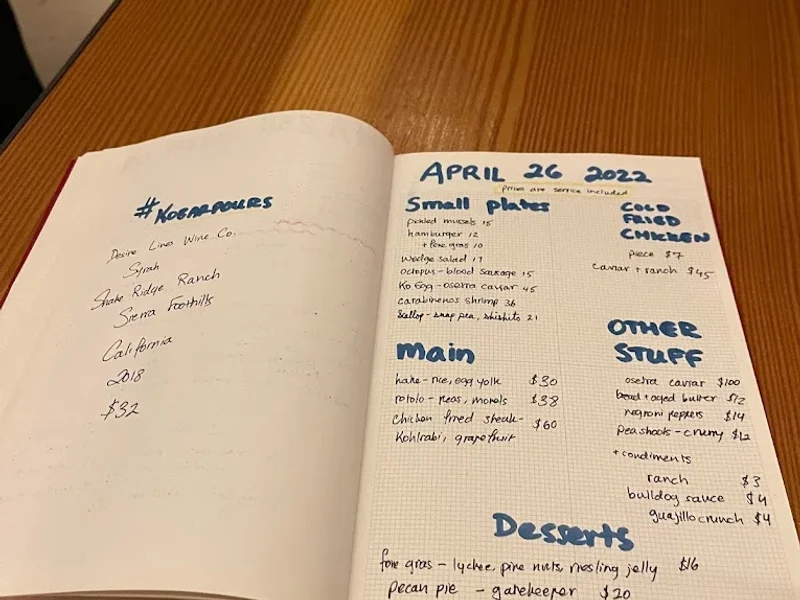 #KOBARPOURS
Desire Lines Wine Co.
Syrah
Shake Ridge Ranch
Sierra Foothills
California
2018
$32
APRIL 26 2022
Prices are service included
Small plates
pickled mussels 15
hamburger 12
+ foie gras 10
wedge salad 17
octopus - blood sausage 15
Ko Egg - osetra caviar 45
carabineros shrimp 36
Scallop - snap pea, shishito 21
COLD
FRIED
CHICKEN
piece $7
caviar + ranch $45
main
hake - rice, egg yolk $30
rotolo - peas, morels $38
Chicken fried steak - $60
Kohlrabi, grapefruit
OTHER
STUFF
osetra caviar $100
bread + aged butter $12
negroni peppers $14
peashoots - $12
+ condiments
ranch $3
bulldog sauce $4
guajillo crunch $4
Desserts
foie gras - lychee, pine nuts, riesling jelly $16
pecan pie - gatekeeper $20